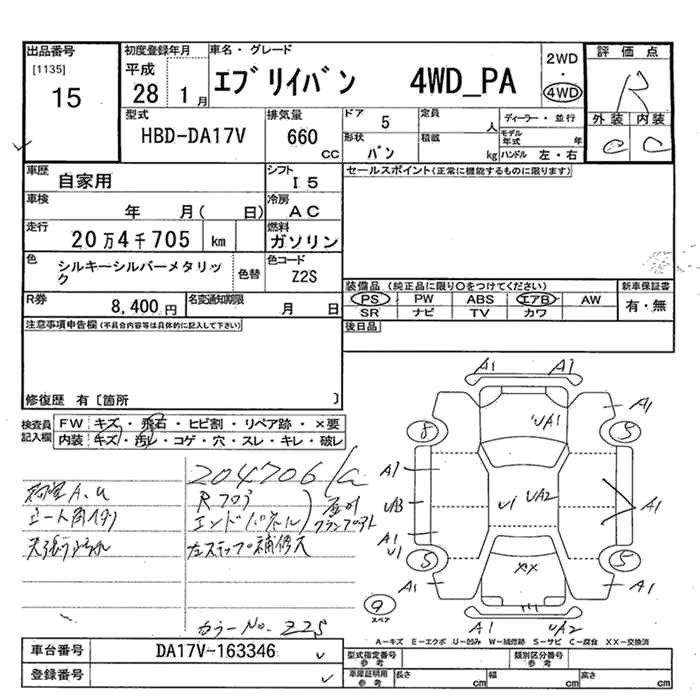 出品番号
[1135]
15
初度登録年月
平成
28 1月
車名・グレード
エブリイバン 4WD_PA
2WD
・
4WD
評価点
R
外装 内装
C C
型式
HBD-DA17V
排気量
660
cc
ドア 5
形状 バン
定員 人
積載 kg
ディーラー・並行
モデル年式 年
ハンドル 左・右
車歴
自家用
シフト
I5
セールスポイント(正常に機能するものに限ります)
車検
年 月( 日)
冷房
AC
走行
20万4千705 km
燃料
ガソリン
色
シルキーシルバーメタリック
色替
色コード
Z2S
装備品 (純正品に限り○をつけてください)
新車保証書
PS PW ABS エアB AW
有・無
SR ナビ TV カワ
R券
8,400円
名変通知期限
月 日
後日品
注意事項申告欄(不具合内容等は具体的に記入して下さい)
修復歴 有〔箇所 〕
検査員
記入欄
FW キズ・飛石・ヒビ割・リペア跡・×要
内装 キズ・汚レ・コゲ・穴・スレ・キレ・破レ
204706
Rフロア
エンドパネル
シート
左ステップ補修大
カラーNo. Z2S
A1 A1
A1
UA1
8 5
A1
UA3
U1 UA2
A1
A1
U1
5 5
XX
A1 A1
9
スペア
A1 UA2
A-キズ E-エクボ U-凹み W-補修跡 S-サビ C-腐食 XX-交換済
車台番号
DA17V-163346
登録番号
型式指定番号
参考
類別区分番号
参考
車庫証明用
参考
長さ cm 幅 cm 高さ cm